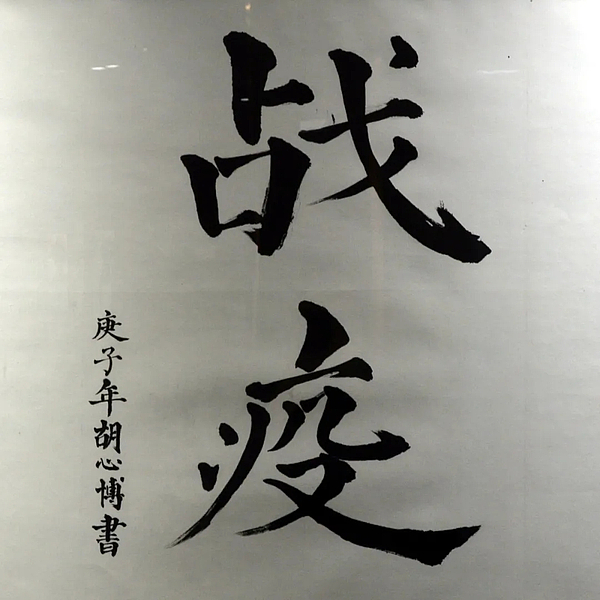 战疫
庚子年胡心博書